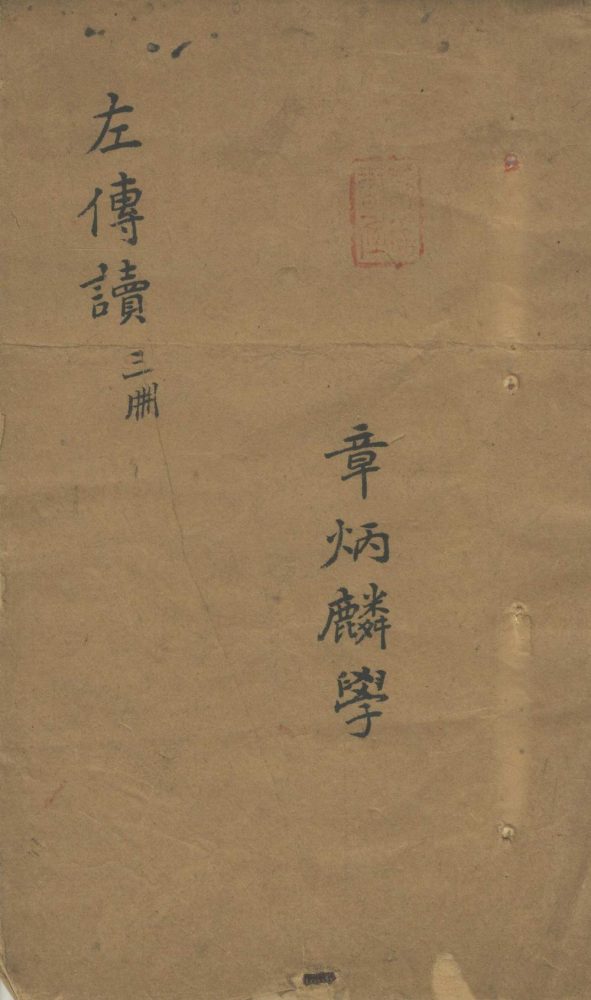 章炳麟學
左傳讀 三冊